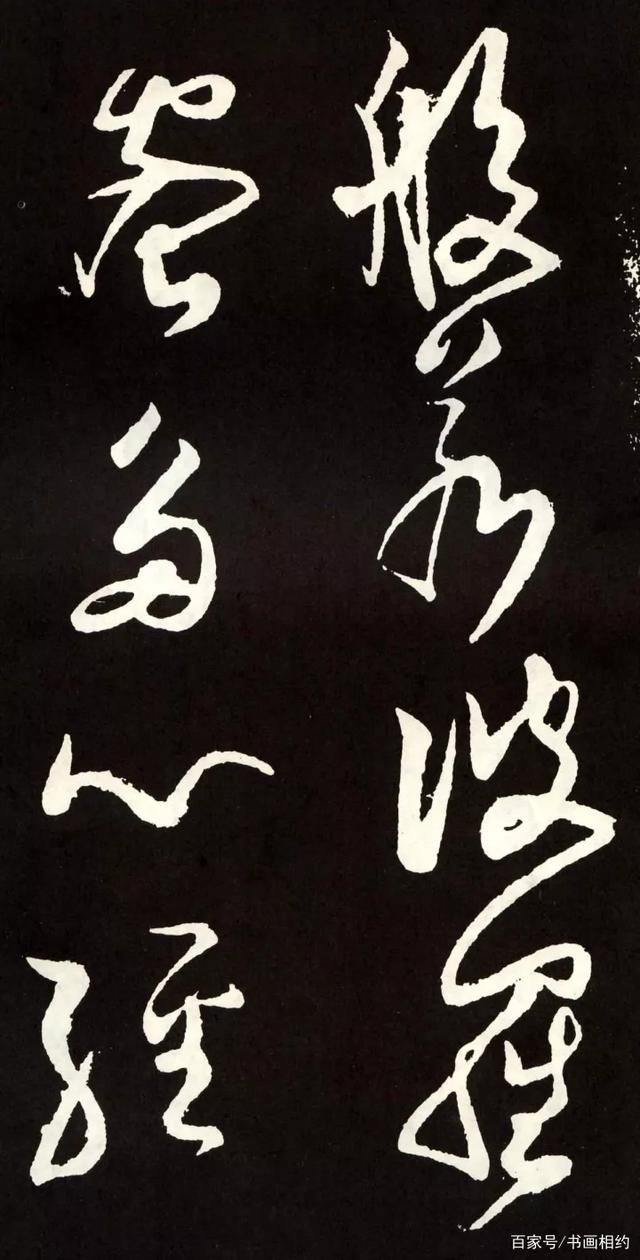 般若波羅
蜜多心經
百家号/书画相约